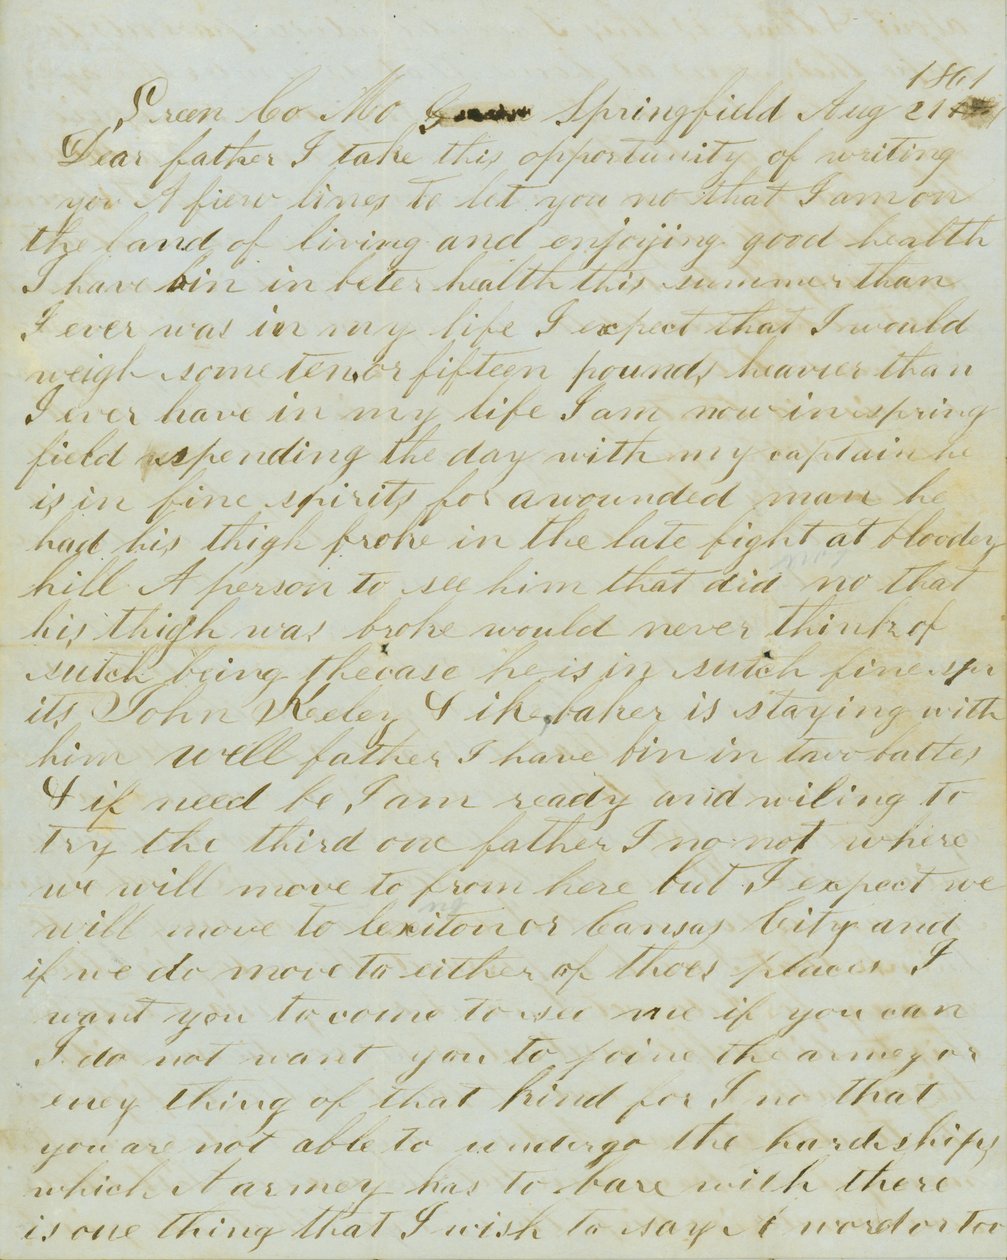 1861
Green Co Mo Springfield Aug 21st
Dear father I take this opportunity of writing
you A fiew lines to let you no that I am on
the land of living and enjoying good health
I have bin in beter health this summer than
I ever was in my life I expect that I would
weigh some ten or fifteen pounds heavier than
I ever have in my life I am now in spring
field spending the day with my captain he
is in fine spirits for a wounded man he
had his thigh broke in the late fight at bloodey
hill A person to see him that did no that
his thigh was broke would never think of
sutch being the case he is in sutch fine spir
its John Keeley & ike baker is staying with
him well father I have bin in two battles
& if need be I am ready and wiling to
try the third one father I no not where
we will move to from here but I expect we
ng
will move to lexiton or Cansas City and
if we do move to either of thoes places I
want you to come to see me if you can
I do not want you to joine the armey or
eney thing of that kind for I no that
you are not able to undergo the hardships
which A armey has to bare with there
is one thing that I wish to say A word or too